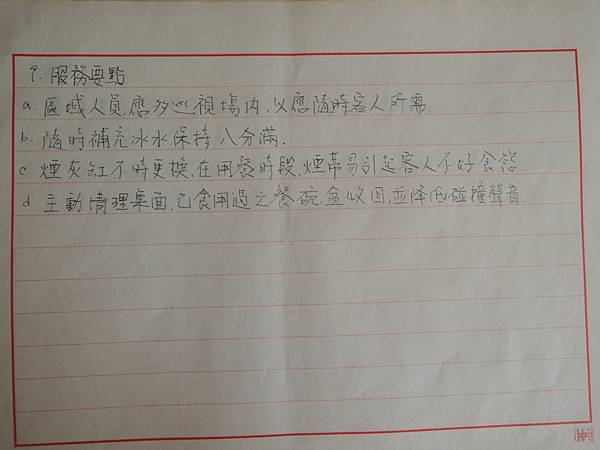 9. 服務要點
a. 區域人員,應多巡視場內,以應隨時客人所需.
b. 隨時補充冰水,保持八分滿.
c 煙灰缸不時更換,在用餐時段,煙蒂易引起客人不好食慾.
d 主動清理桌面,已食用過之餐碗.盆收回,並降低碰撞聲音.